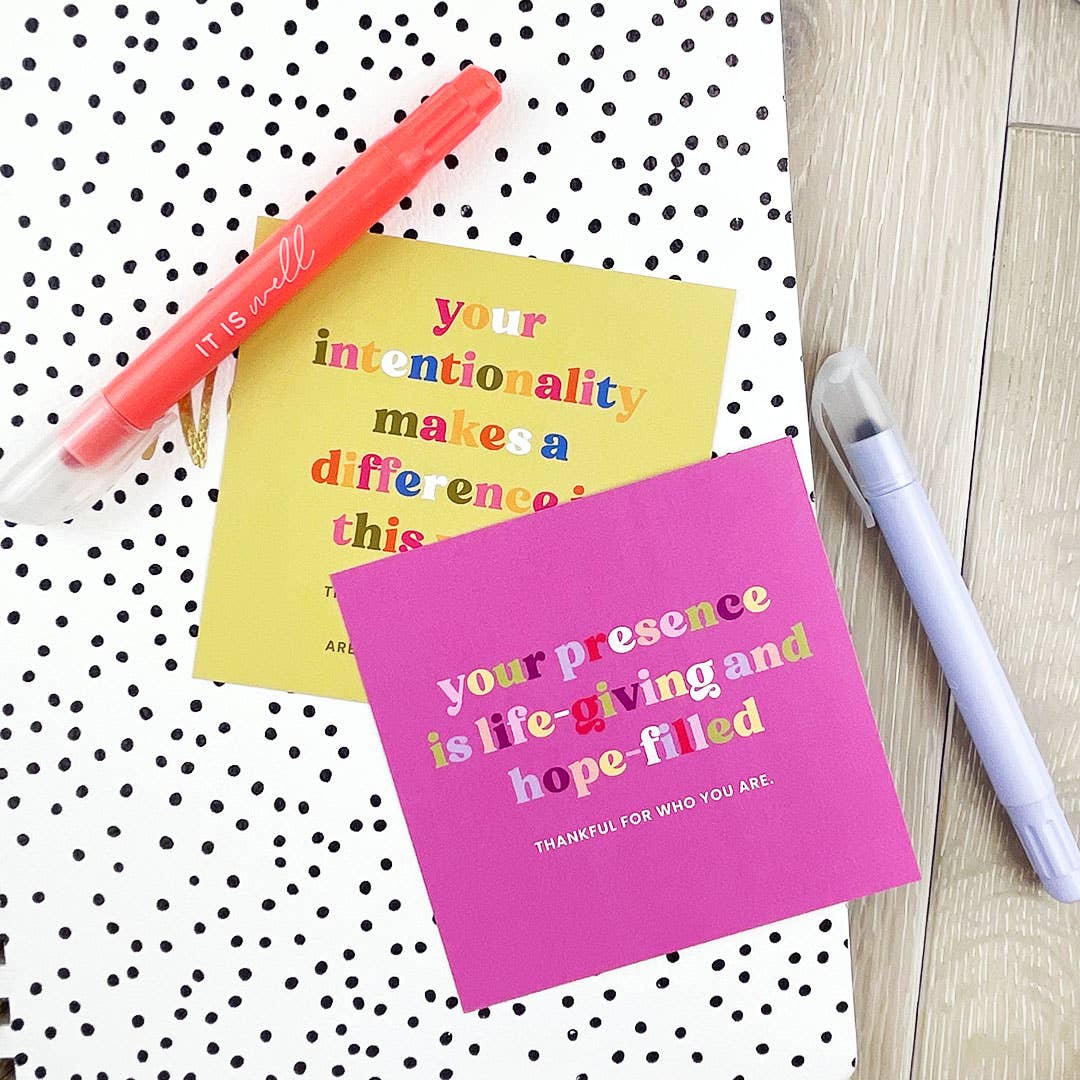 IT IS well
your
intentionality
makes a
difference
this
ARE
your presence
is life-giving and
hope-filled
THANKFUL FOR WHO YOU ARE.